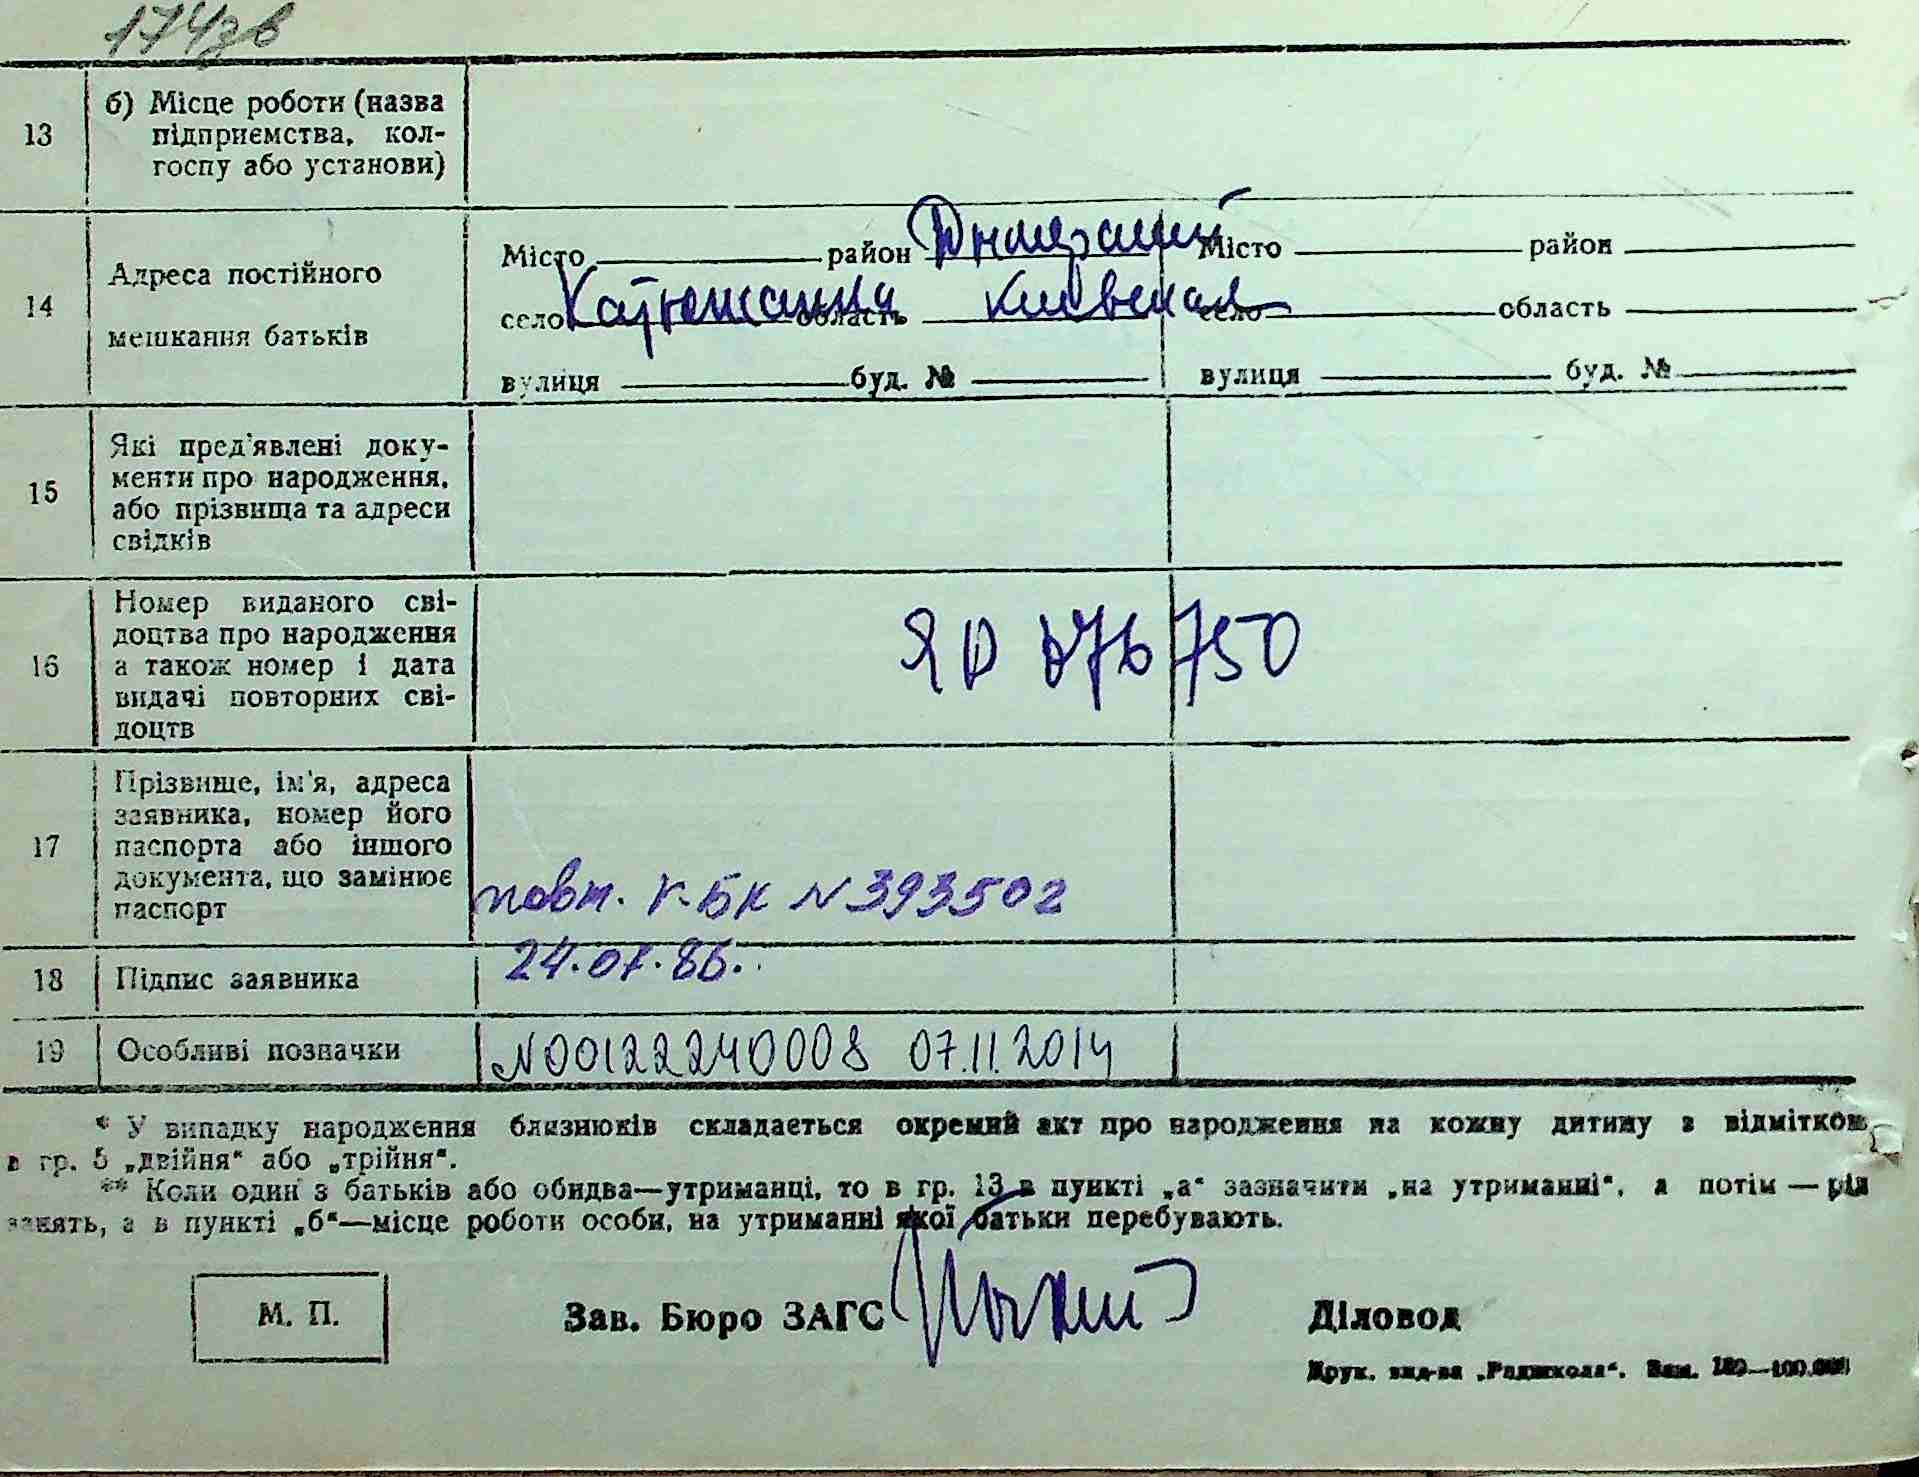 174зв
13
б) Місце роботи (назва
підприємства, кол-
госпу або установи)
14
Адреса постійного
мешкання батьків
Місто район Димерский
село Катюжанка область Киевская
вулиця буд. №
Місто район
село область
вулиця буд. №
15
Які пред'явлені доку-
менти про народження,
або прізвища та адреси
свідків
16
Номер виданого сві-
доцтва про народження
а також номер і дата
видачі повторних сві-
доцтв
ЯЮ 076750
17
Прізвище, ім'я, адреса
заявника, номер його
паспорта або іншого
документа, що замінює
паспорт
повт. V-БК N 393502
24.07.86.
18
Підпис заявника
19
Особливі позначки
N00122240008 07.11.2014
* У випадку народження близнюків складається окремий акт про народження на кожну дитину з відміткою
в гр. 5 „двійня“ або „трійня“.
** Коли один з батьків або обидва—утриманці, то в гр. 13 в пункті „а“ зазначити „на утриманні“, а потім — рід
занять, а в пункті „б“—місце роботи особи, на утриманні якої батьки перебувають.
М. П.
Зав. Бюро ЗАГС
Діловод
Друк. вид-ва „Радшкола“. Зам. 180—100.000